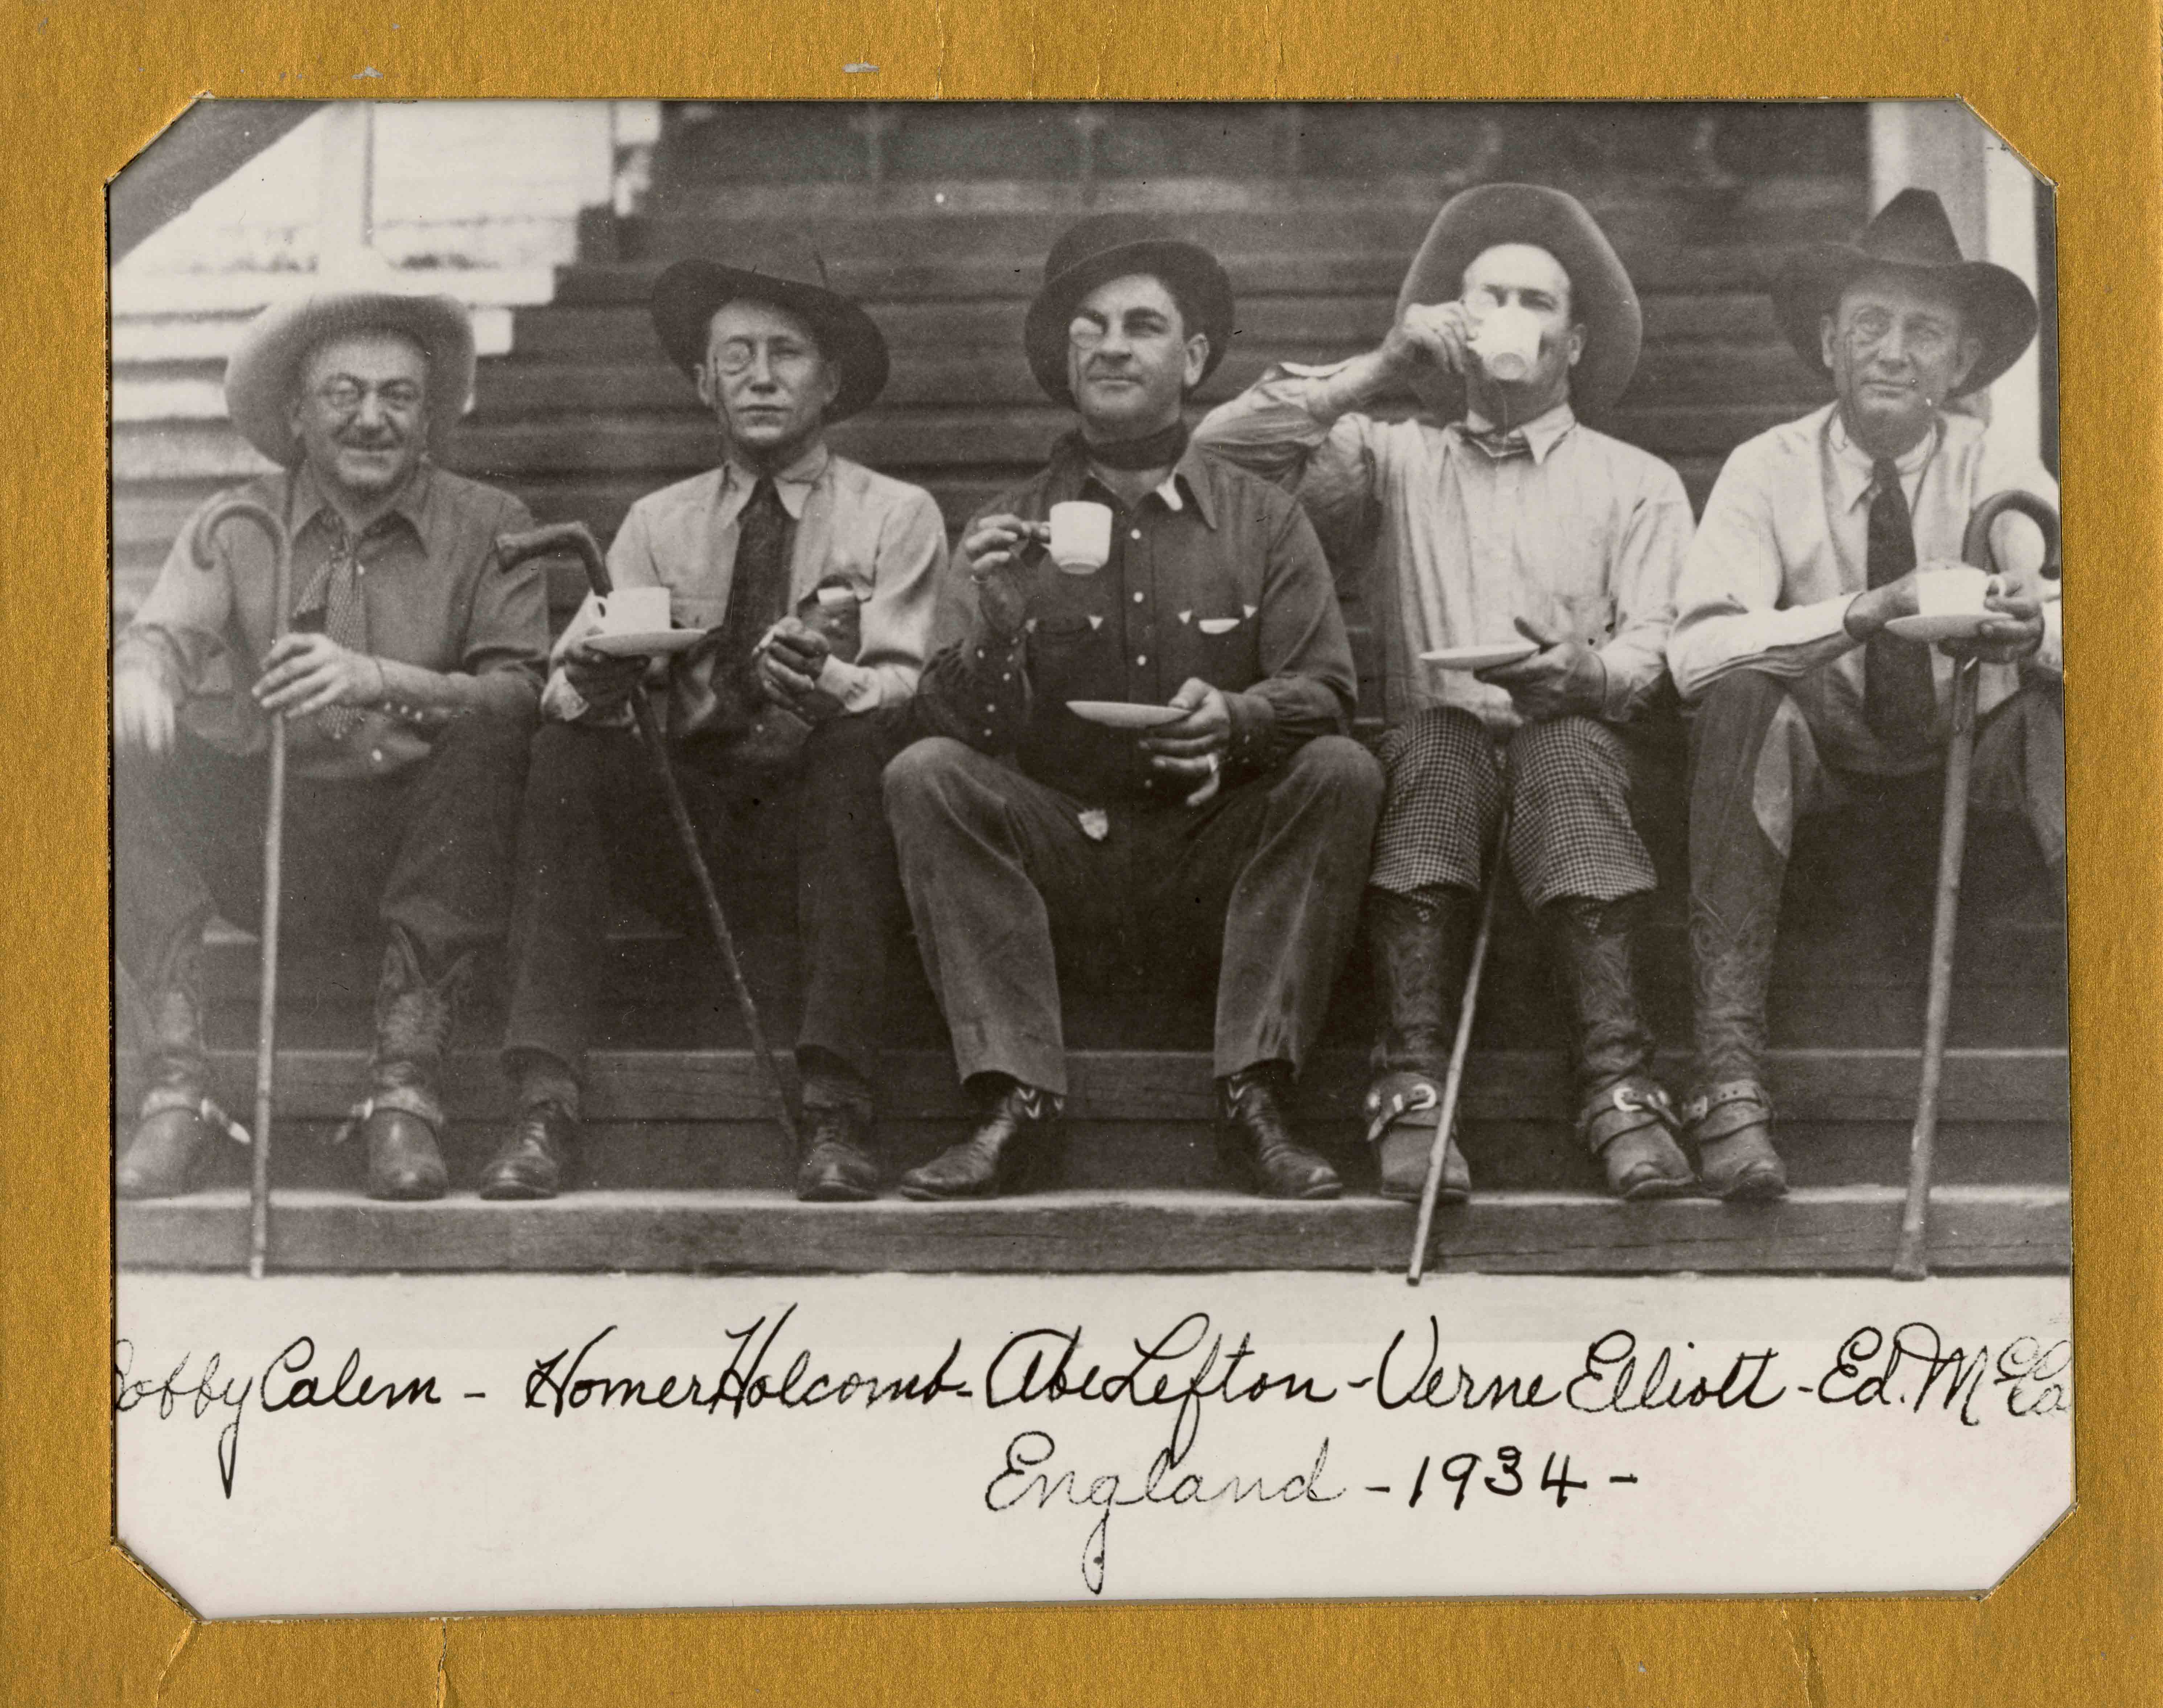 Bobby Calem - Homer Holcomb - Abe Lefton - Verne Elliott - Ed. McCa
England - 1934 -